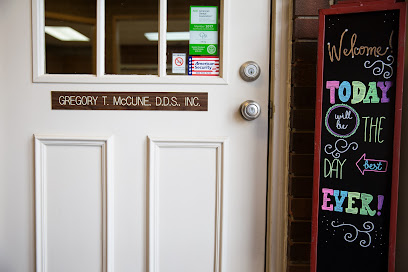 American
Security
GREGORY T. McCUNE, D.D.S., INC.
Welcome!
TODAY
will
be
THE
DAY
best
EVER!